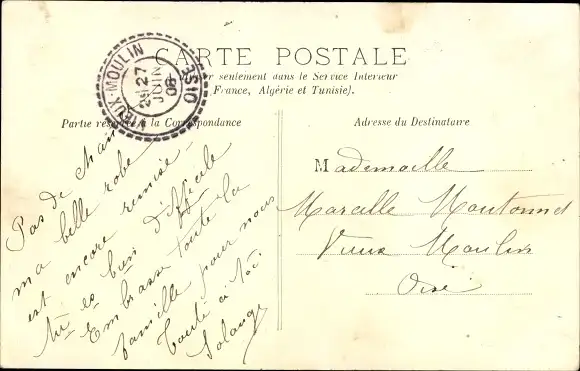 CARTE POSTALE
seulement dans le Service Intérieur
(France, Algérie et Tunisie).
VIEUX-MOULIN
OISE
27
JUIN
08
Partie réservée à la Correspondance
Pas de
ma belle robe
est encore remise
tu es bien
Embrasse toute la
famille pour nous
Toute à toi
Solange
Adresse du Destinataire
Mademoiselle
Marcelle
Vieux Moulin
Oise